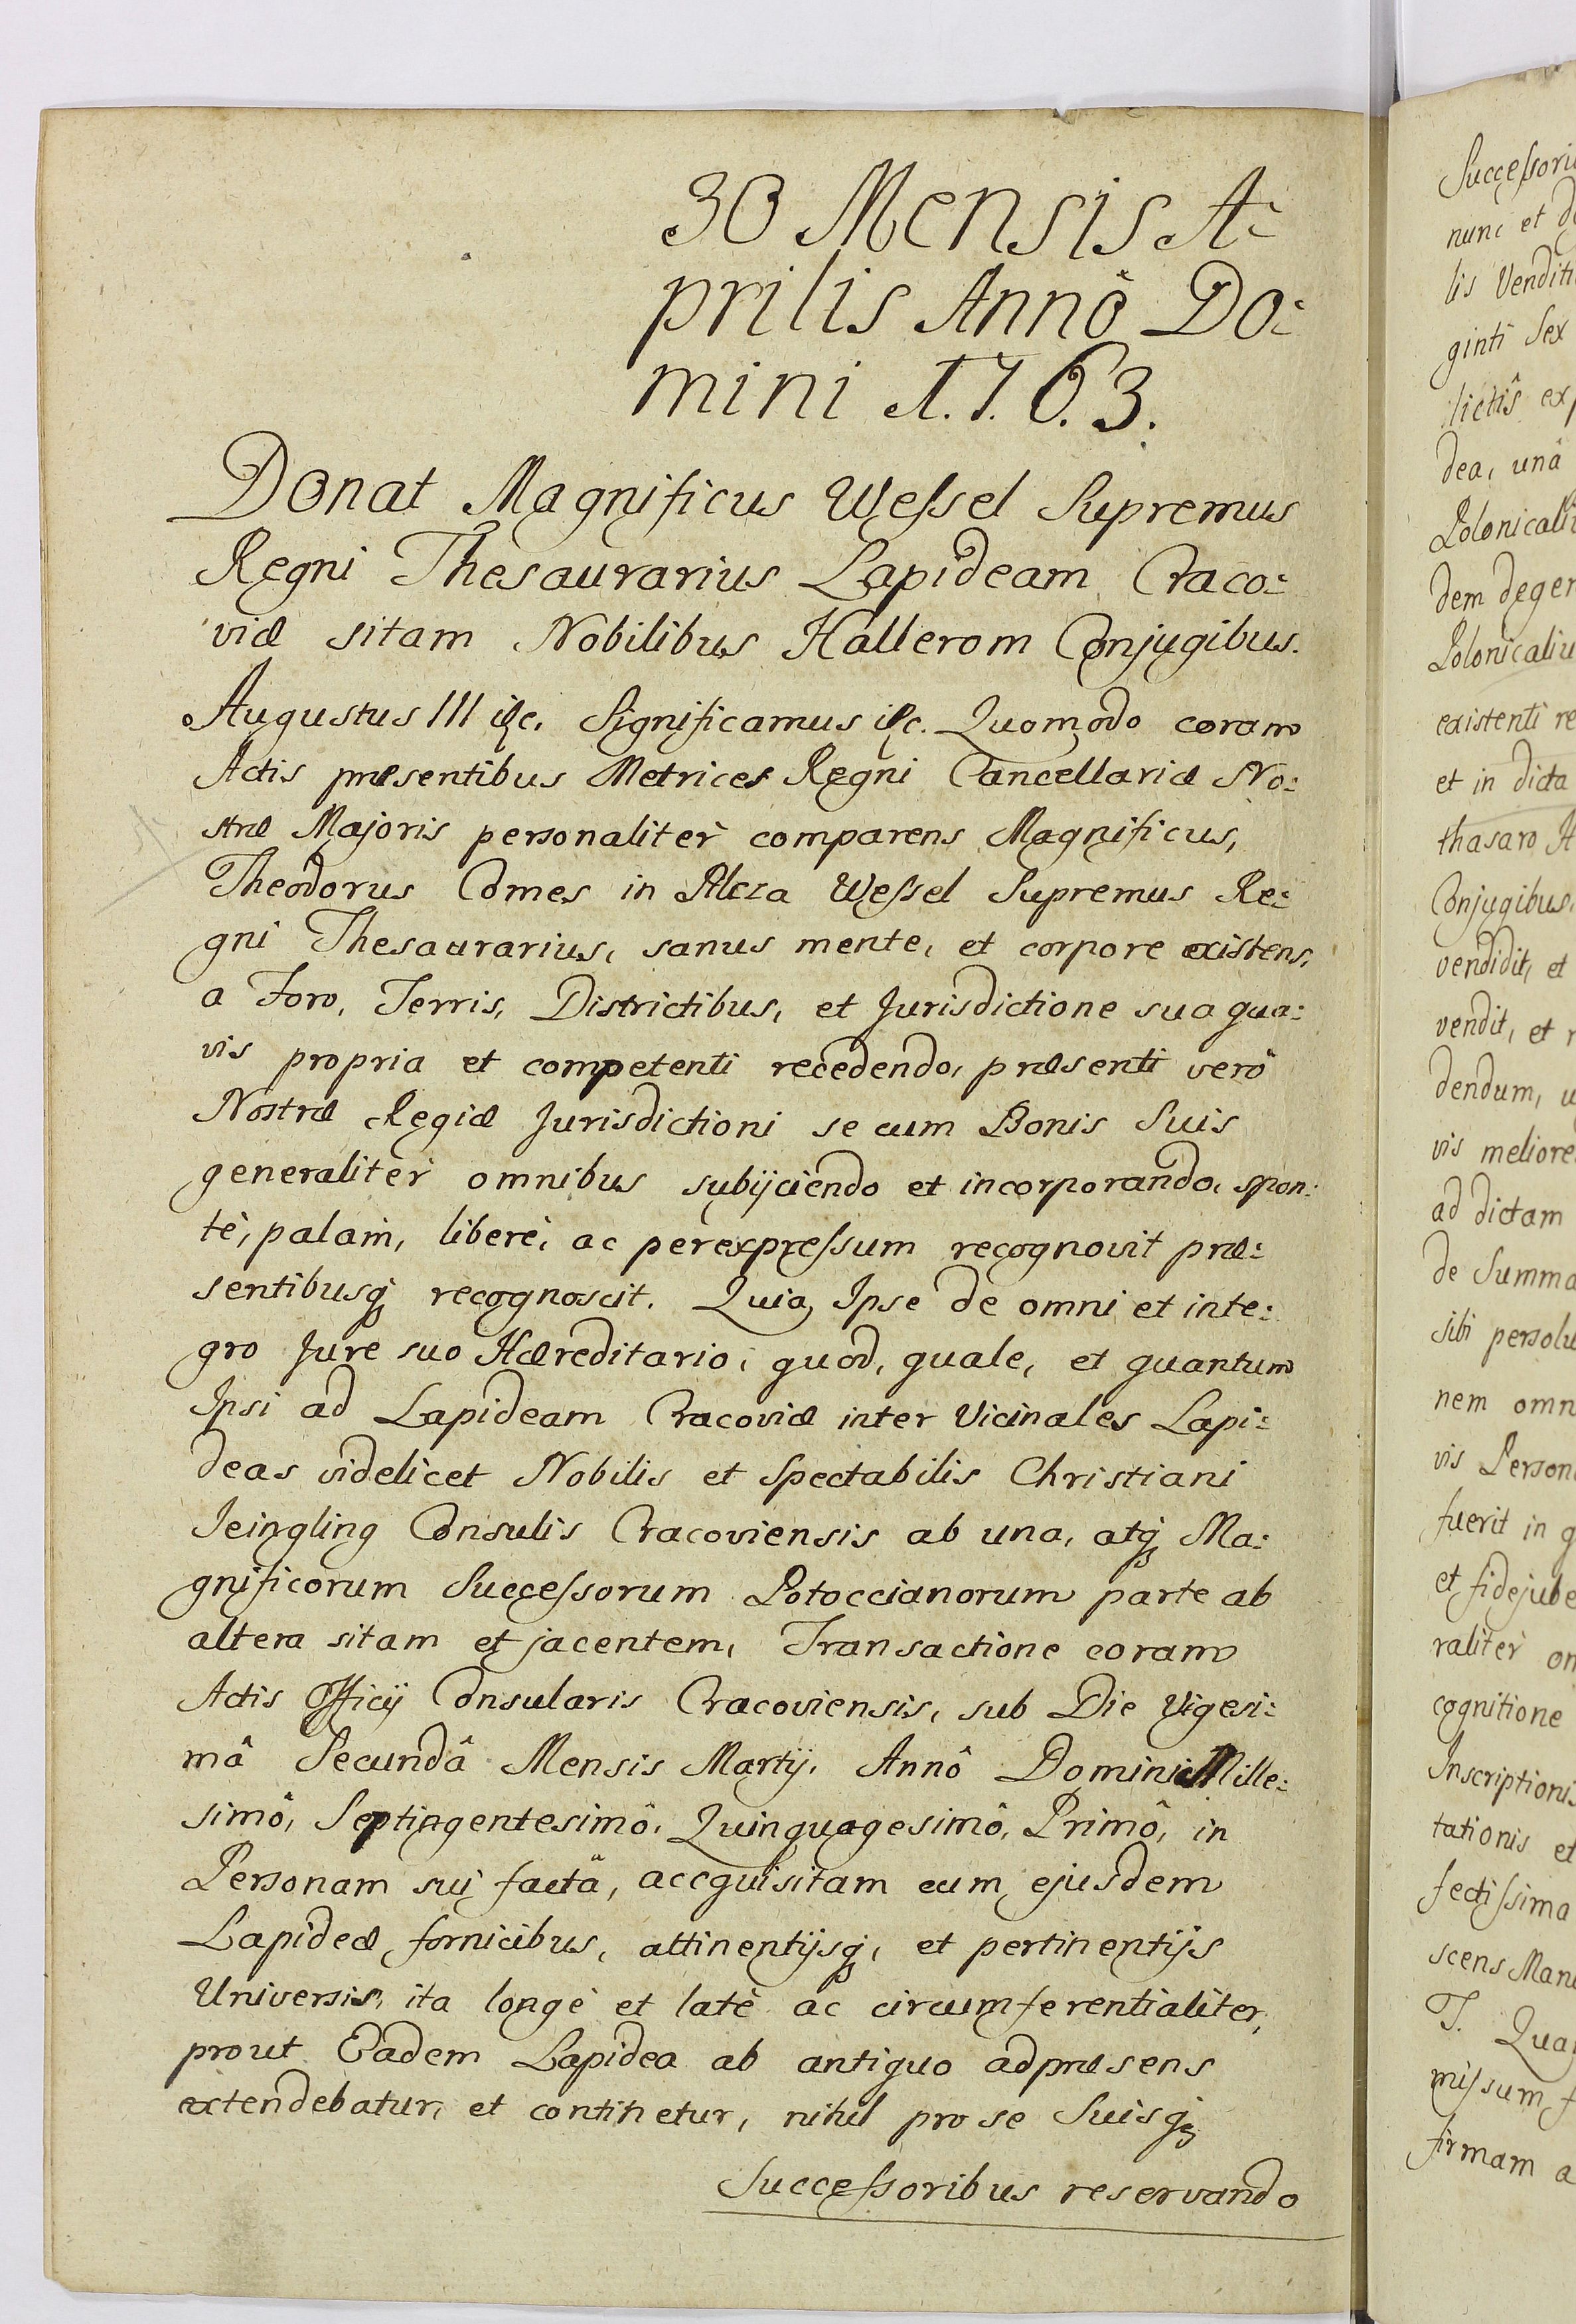 30 Mensis A:
prilis Annô Do:
mini 1.7.6.3.
Donat Magnificus Weſsel Supremus
Regni Thesaurarius Lapideam Craco:
viæ sitam Nobilibus Hallerom Conjugibus.
Augustus III etc. Significamus etc. Quomodo coram
Actis præsentibus Metrices Regni Cancellariæ No:
stræ Majoris personaliter comparens Magnificus,
Theodorus Comes in Pilcza Weſsel Supremus Re:
gni Thesaurarius, sanus mente, et corpore existens,
a Foro, Terris, Districtibus, et Jurisdictione sua qua:
vis propria et competenti recedendo, præsenti verò
Nostræ Regiæ Jurisdictioni se cum Bonis Suis
generaliter omnibus subijciendo et incorporando, spon:
tè, palàm, liberè, ac perexpreſsum recognovit præ:
sentibusq recognoscit. Quia, Ipse de omni et inte:
gro Jure suo Hæreditario, quod, quale, et quantum
Ipsi ad Lapideam Cracoviæ inter Vicinales Lapi:
deas videlicet Nobilis et Spectabilis Christiani
Jeingling Consulis Cracoviensis ab una, atq Ma:
gnificorum Succeſsorum Potoccianorum parte ab
altera sitam et jacentem, Transactione coram
Actis Officij Consularis Cracoviensis, sub Die Vigesi:
mâ Secundâ Mensis Martij. Annô Domini Mille:
simô, Septingentesimô, Quinquagesimô, Primô, in
Personam sui factâ, accquisitam cum ejusdem
Lapideæ fornicibus, attinentijsq, et pertinentijs
Universis, ita longè et latè ac circumferentialiter,
prout Eadem Lapidea ab antiquo adpræsens
extendebatur, et continetur, nihil pro se Suisq
Succeſsoribus reservando
Succeſsori
nunc et
lis Venditi
ginti Sex
lictis
dea, unâ
Polonicali
dem deger
Polonicaliu
existenti re
et in dicta
thasaro H
Conjugibus
vendidit, et
vendit, et r
dendum, u
vis meliore
ad dictam
de Summa
sibi persolu
nem omn
vis Person
fuerit in q
et fidejube
raliter on
cognitione
Inscriptionis
tationis et
fectiſsima
scens Man
T. Qua
miſsum f
firmam a